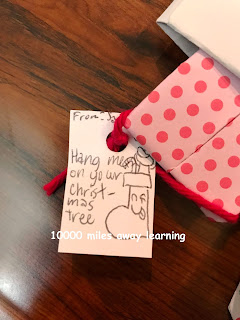 From:
Hang me
on your
christ-
mas
tree
10000 miles away learning